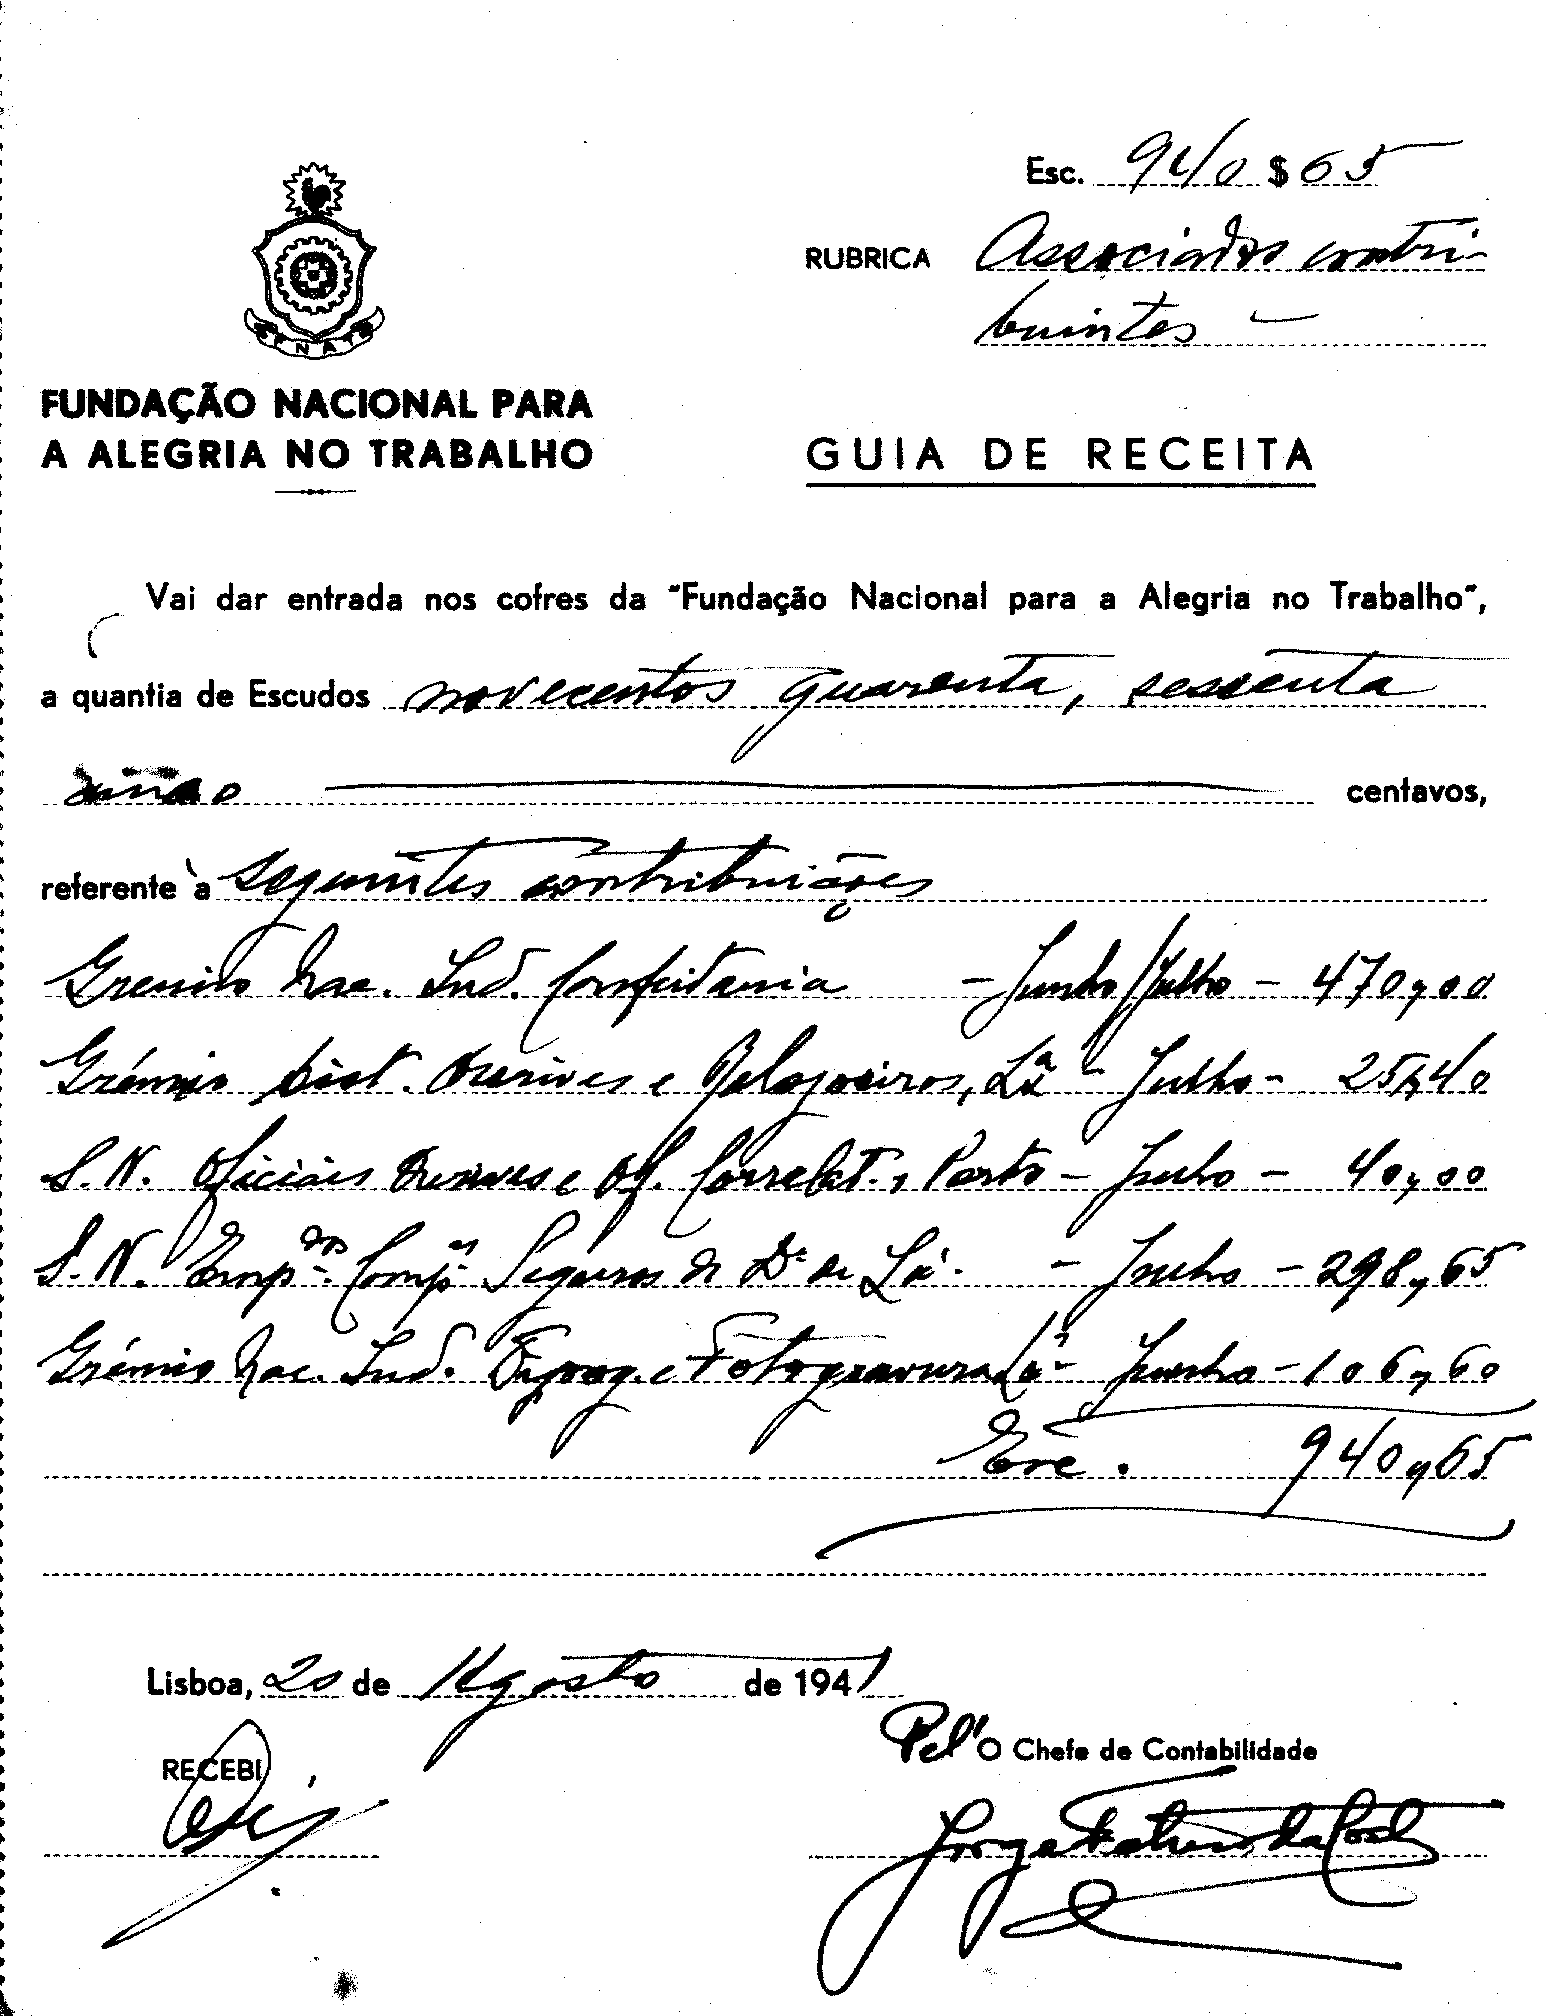 Esc. 940 $ 65
RUBRICA Associados contri-
buintes —
FNAT
FUNDAÇÃO NACIONAL PARA
A ALEGRIA NO TRABALHO
GUIA DE RECEITA
Vai dar entrada nos cofres da "Fundação Nacional para a Alegria no Trabalho",
a quantia de Escudos novecentos quarenta, sessenta
cinco — centavos,
referente à seguintes contribuições
Gremio Nac. Ind. Confeitaria - Junho/Julho - 470,00
Grémio Dist. Ourives e Relojoeiros, Lxª - Julho - 25,40
S.N. Oficiais Ourives e Of. Correlat., Porto - Julho - 40,00
S.N. Empdos. Compas Seguros de Lx. - Julho - 298,65
Grémio Nac. Ind. Tipog. e Fotogravura Lxª - Junho - 106,60
Esc. 940,65
Lisboa, 20 de Agosto de 1941
RECEBI,
Pel'O Chefe de Contabilidade
Jorge da Costa